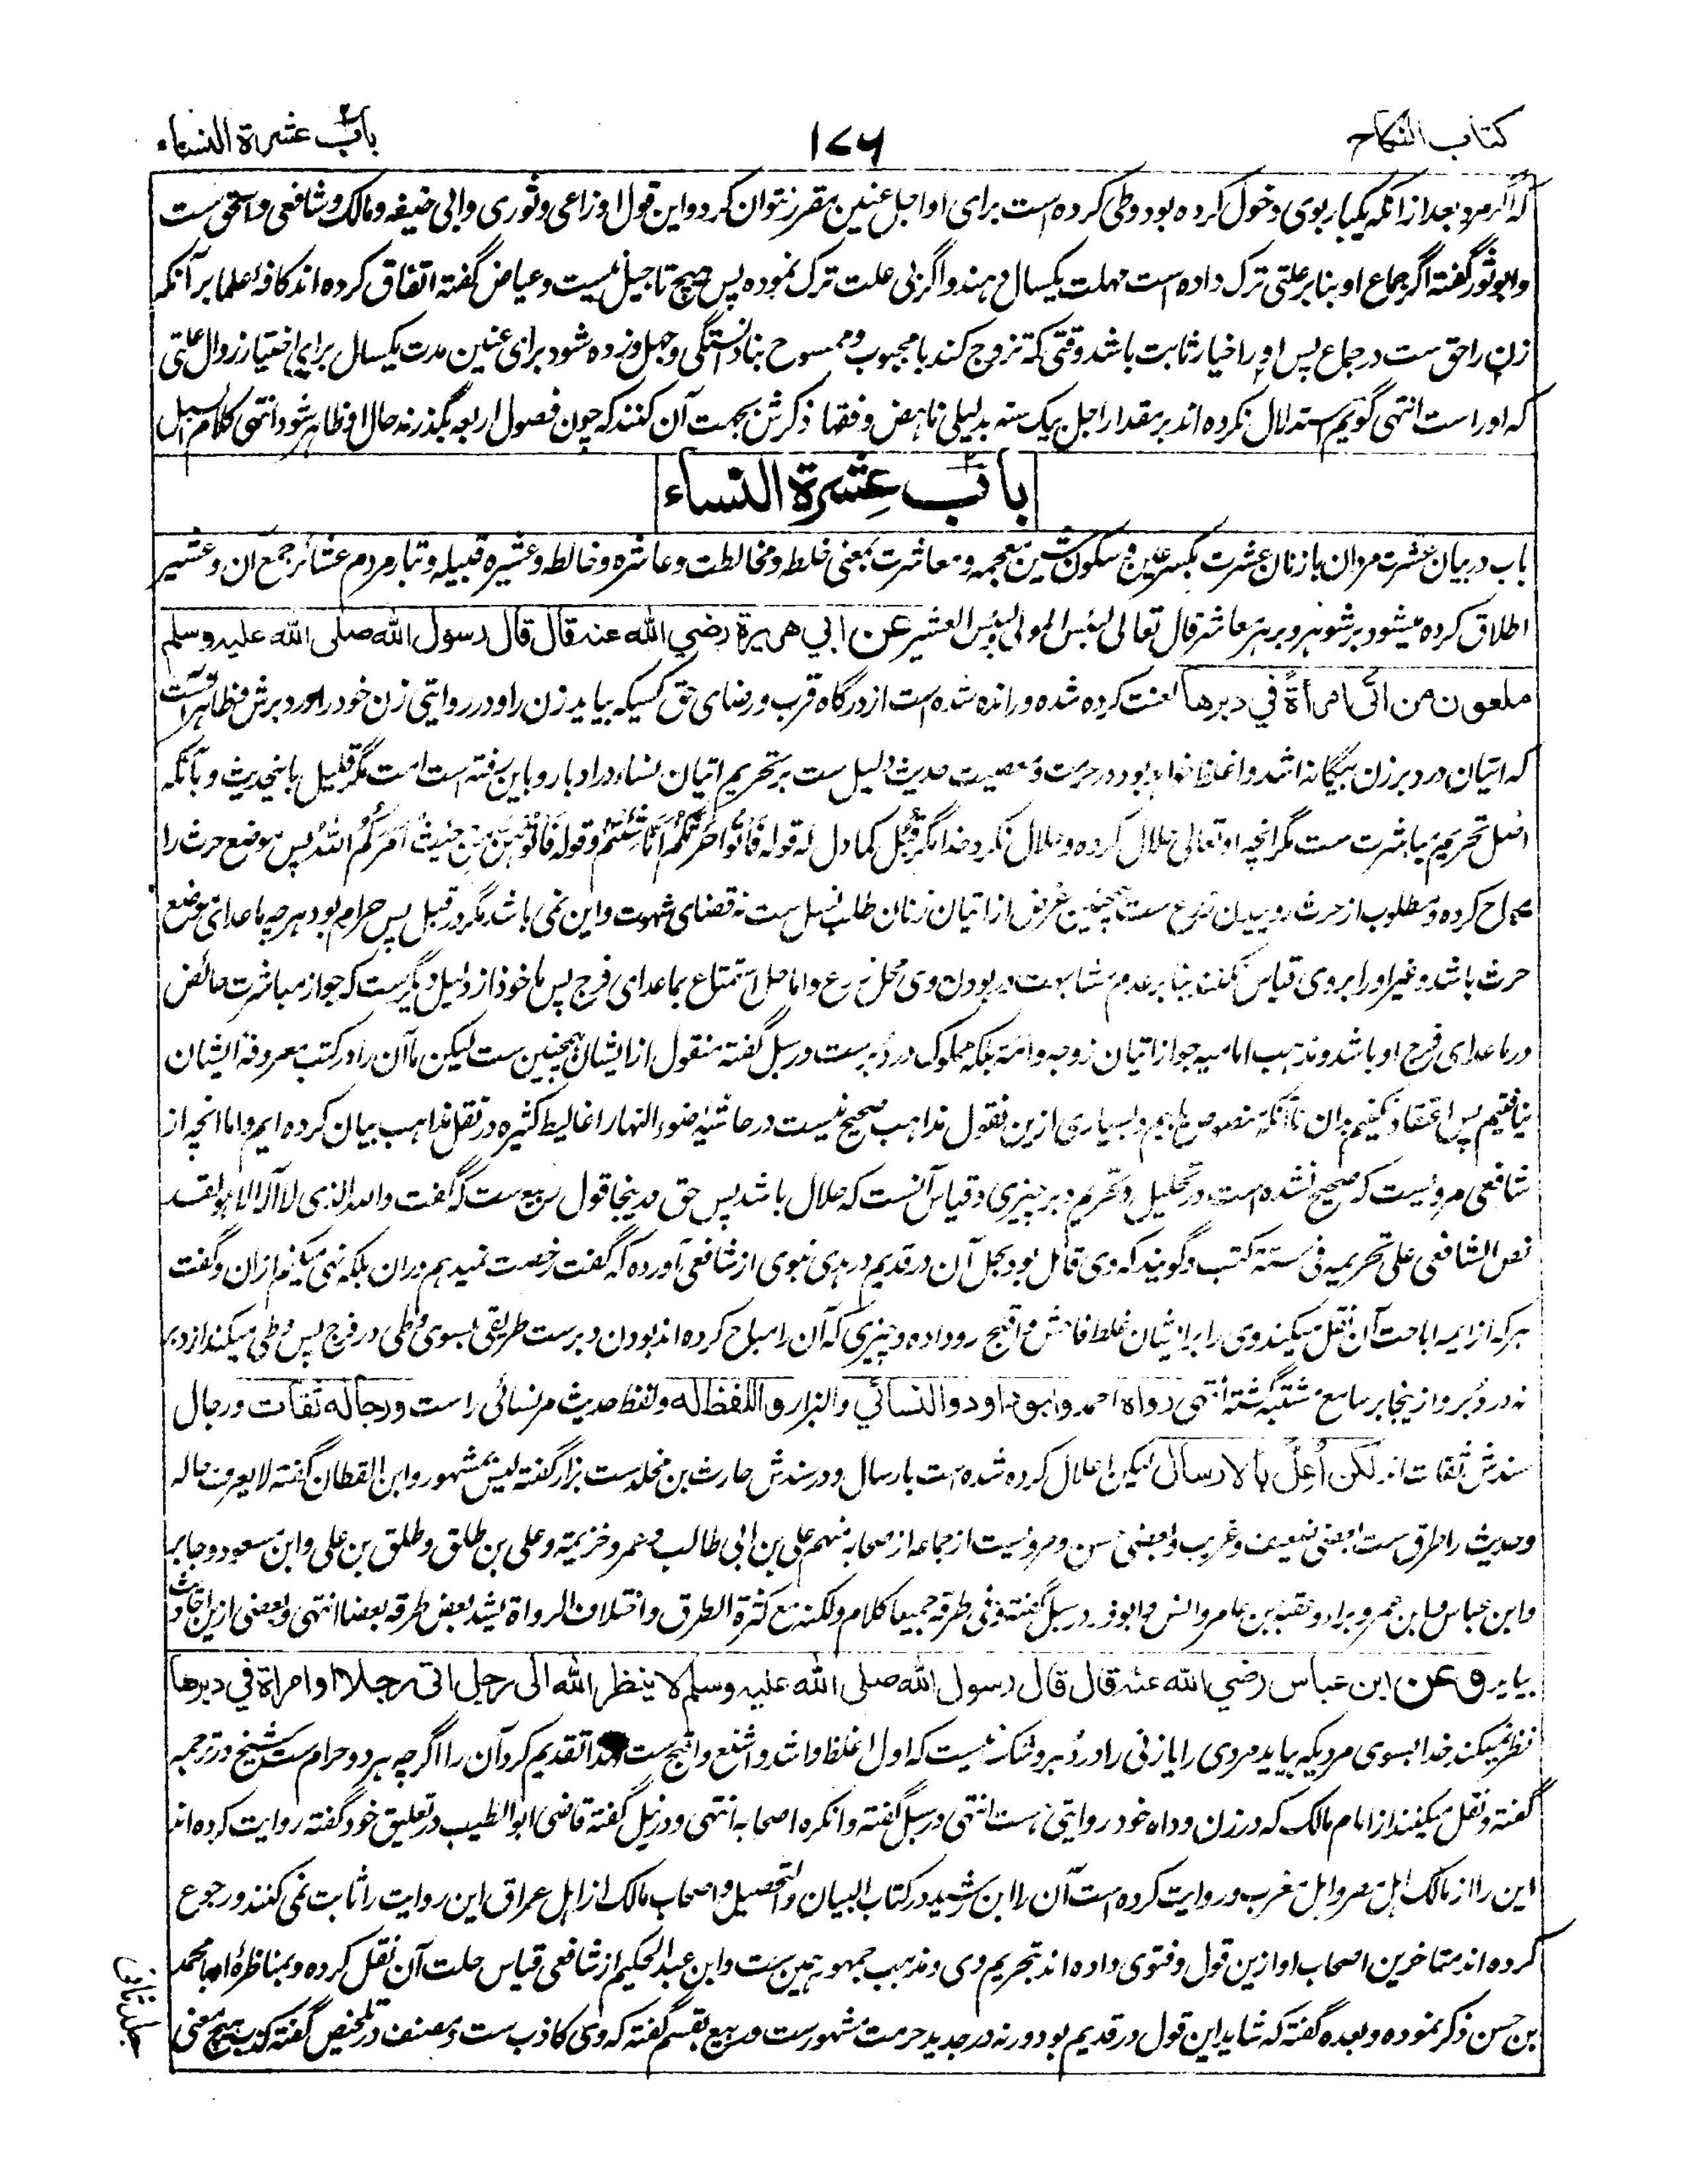 کتاب النکاح
۱۷۶
باب عشرة النساء
که اگر مرد بعد ازانکه یکبار بوی دخول کرده بود و وطی کرده است برای او اجل عنین مقرر نتوان کرد و این قول اوزاعی و ثوری و ابی حنیفه و مالک و شافعی و اسحق ست
و ابو ثور گفته اگر جماع او بنا بر علتی ترک داده است مهلت یکسال دهند و اگر بی علت ترک نموده پس هیچ تاجیل نیست و عیاض گفته اتفاق کرده اند کافه علما بر آنکه
زن را حق ست در جماع پس او را خیار ثابت باشد وقتی که تزوج کند با مجبوب و ممسوح بنادانستگی و جهل و زده شود برای عنین مدت یکسال برای اختیار زوال علتی
که او راست انتهی گویم استدلال نکرده اند بر مقدار اجل بیک سنه بدلیلی ناهض و فقها ذکرش بجهت آن کنند که چون فصول اربعه بگذرند حال او ظاهر شود انتهی کلام السبل
باب عِشرة النساء
باب در بیان عشرت مردان با زنان عشرت بکسر عین و سکون شین معجمه و معاشرت بمعنی خلطه و مخالطت و عاشره و خالطه و عشیره قبیله و تبار مردم عشائر جمع آن و عشیر
اطلاق کرده میشود بر شوهر و بر هر معاشر قال تعالی لبئس المولی و لبئس العشیر عن ابي هريرة رضي الله عنه قال قال رسول الله صلى الله عليه وسلم
ملعون من اتى امرأةً في دبرها لعنت کرده شده و رانده شده است از درگاه قرب و رضای حق کسیکه بیاید زن را و در روایتی زن خود را در دبرش و ظاهر آنست
که اتیان در دبر زن بیگانه اشد و اغلظ خواهد بود در حرمت و معصیت حدیث دلیل ست بر تحریم اتیان نساء در ادبار و باین رفته است امت مگر قلیل باینحدیث و بآنکه
اصل تحریم مباشرت ست مگر انچه او تعالی حلال کرده و حلال نکرد خدا مگر قبل کما دل له قوله فَأْتُوا حَرْثَكُمْ أَنَّى شِئْتُمْ و قوله فَأْتُوهُنَّ مِنْ حَيْثُ أَمَرَكُمُ اللهُ پس موضع حرث را
مباح کرده و مطلوب از حرث روییدن زرع ست همچنین غرض از اتیان زنان طلب نسل ست نه قضای شهوت و این نمی باشد مگر در قبل پس حرام بود هر چه ماعدای موضع
حرث باشد و غیر او را بروی قیاس نکنند بنا بر عدم مشابهت در بودن وی محل زرع و اما حل استمتاع بماعدای فرج پس ماخوذ از دلیل دیگرست که جواز مباشرت حائض
در ماعدای فرج او باشد و مذهب امامیه جواز اتیان زوجه و امة بلکه مملوک در دبرست در سبل گفته منقول از ایشان همچنین ست لیکن ما آن را در کتب معروفه ایشان
نیافتیم پس اعتقاد نکنیم بدان تا آنکه منصوص یابیم و بسیاری ازین نقول مذاهب صحیح نیست در حاشیه ضوء النهار اغالیط کثیره در نقل مذاهب بیان کرده ایم و اما انچه از
شافعی مرویست که صحیح نشده است در تحلیل و تحریم دبر چیزی و قیاس آنست که حلال باشد پس حق درینجا قول ربیع ست که گفت والله الذی لا اله الا هو لقد
نص الشافعی علی تحریمه فی ستة کتب و گویند که وی قائل بود بحل آن در قدیم در هدی نبوی از شافعی آورده که گفت رخصت نمیدهم دران بلکه نهی میکنم ازان و گفت
هر که از ایمه اباحت آن نقل میکند وی را بر ایشان غلط فاحش و اقبح روداده و چیزی که آن را مباح کرده اند بودن دبرست طریقی بسوی وطی در فرج پس وطی میکند از دبر
نه در دُبر و ازینجا بر سامع مشتبه گشته انتهی رواه احمد وابوداود والنسائي والبزار واللفظ له و لفظ حدیث مر نسائی راست ورجاله ثقات و رجال
سندش ثقات اند لكن اُعِلّ بالارسال لیکن اعلال کرده شده است بارسال و در سندش حارث بن مخلدست بزار گفته لیس بمشهور و ابن القطان گفته لا یعرف حاله
و حدیث را طرق ست بعضی ضعیف و غریب و بعضی حسن و مرویست از جماعه از صحابه منهم علی بن ابی طالب و عمر و خزیمة و علی بن طلق و طلق بن علی و ابن مسعود و جابر
و ابن عباس و ابن عمر و براء و عقبه بن عامر و انس و ابوذر در سبل گفته و فی طرقه جمیعا کلام ولکنه مع کثرة الطرق و اختلاف الرواة یشد بعض طرقه بعضا انتهی و بعضی ازین احادیث
بیاید و عن ابن عباس رضي الله عنه قال قال رسول الله صلى الله عليه وسلم لا ينظر الله الى رجل اتى رجلا او امراة في دبرها
نظر نمیکند خدا بسوی مردیکه بیاید مردی را یا زنی را در دُبر و شک نیست که اول اغلظ و اشد و اشنع و اقبح ست لهذا تقدیم کرد آن را اگرچه هر دو حرام ست شیخ در ترجمه
گفته و نقل میکنند از امام مالک که در زن و داه خود روایتی هست انتهی در سبل گفته و انکره اصحابه انتهی و در نیل گفته قاضی ابو الطیب در تعلیق خود گفته روایت کرده اند
این را از مالک اهل مصر و اهل مغرب و روایت کرده است آن را ابن رشید در کتاب البیان و التحصیل و اصحاب مالک از اهل عراق این روایت را ثابت نمی کنند و رجوع
کرده اند متاخرین اصحاب او ازین قول و فتوی داده اند بتحریم وی و مذهب جمهور همین ست و ابن عبد الحکیم از شافعی قیاس حلت آن نقل کرده و بمناظرهٔ او با محمد
بن حسن ذکر نموده و بعده گفته که شاید این قول در قدیم بود ورنه در جدید حرمت مشهورست و ربیع بقسم گفته که وی کاذب ست و مصنف در تلخیص گفته که هیچ معنی